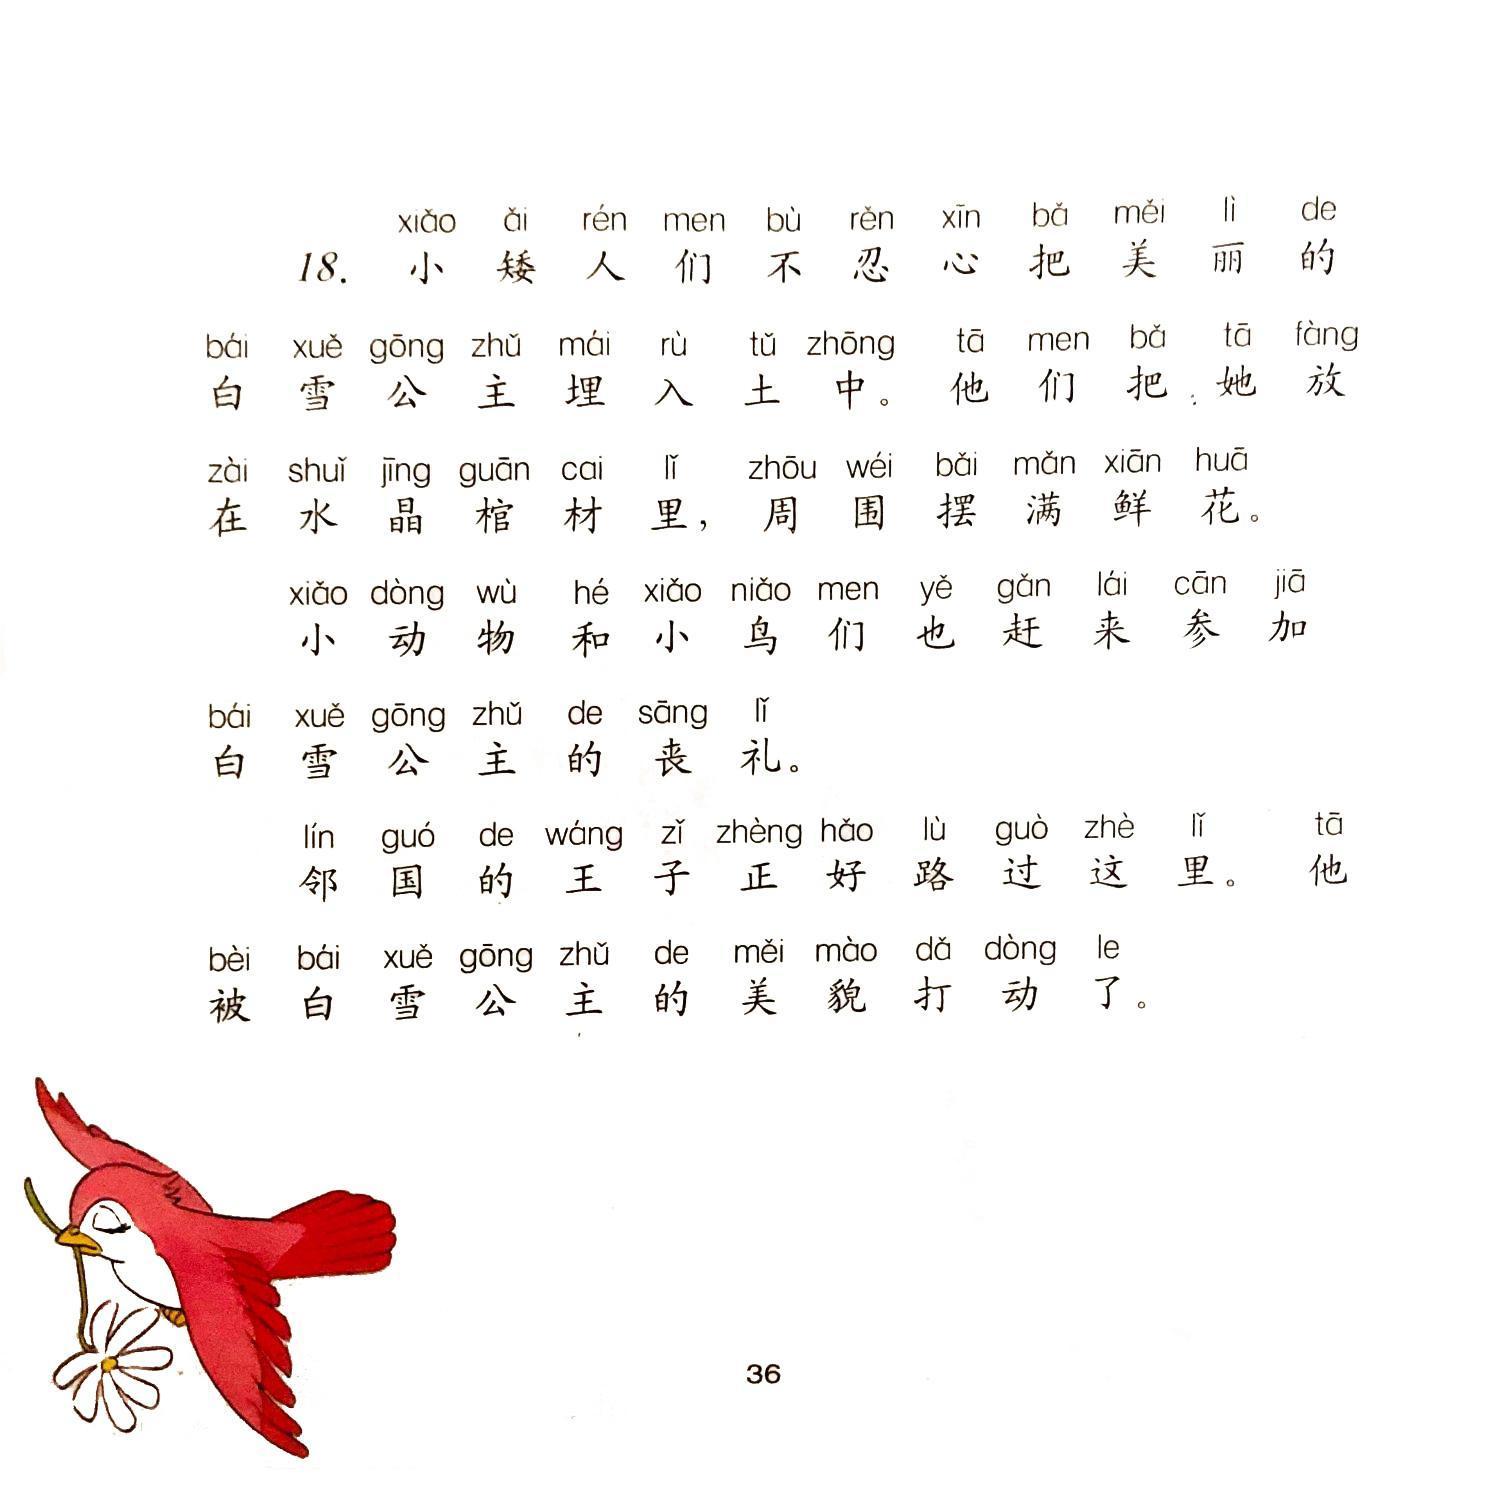 xiǎo ǎi rén men bù rěn xīn bǎ měi lì de
18. 小矮人们不忍心把美丽的
bái xuě gōng zhǔ mái rù tǔ zhōng tā men bǎ tā fàng
白雪公主埋入土中。他们把她放
zài shuǐ jīng guān cai lǐ zhōu wéi bǎi mǎn xiān huā
在水晶棺材里,周围摆满鲜花。
xiǎo dòng wù hé xiǎo niǎo men yě gǎn lái cān jiā
小动物和小鸟们也赶来参加
bái xuě gōng zhǔ de sāng lǐ
白雪公主的丧礼。
lín guó de wáng zǐ zhèng hǎo lù guò zhè lǐ tā
邻国的王子正好路过这里。他
bèi bái xuě gōng zhǔ de měi mào dǎ dòng le
被白雪公主的美貌打动了。
36